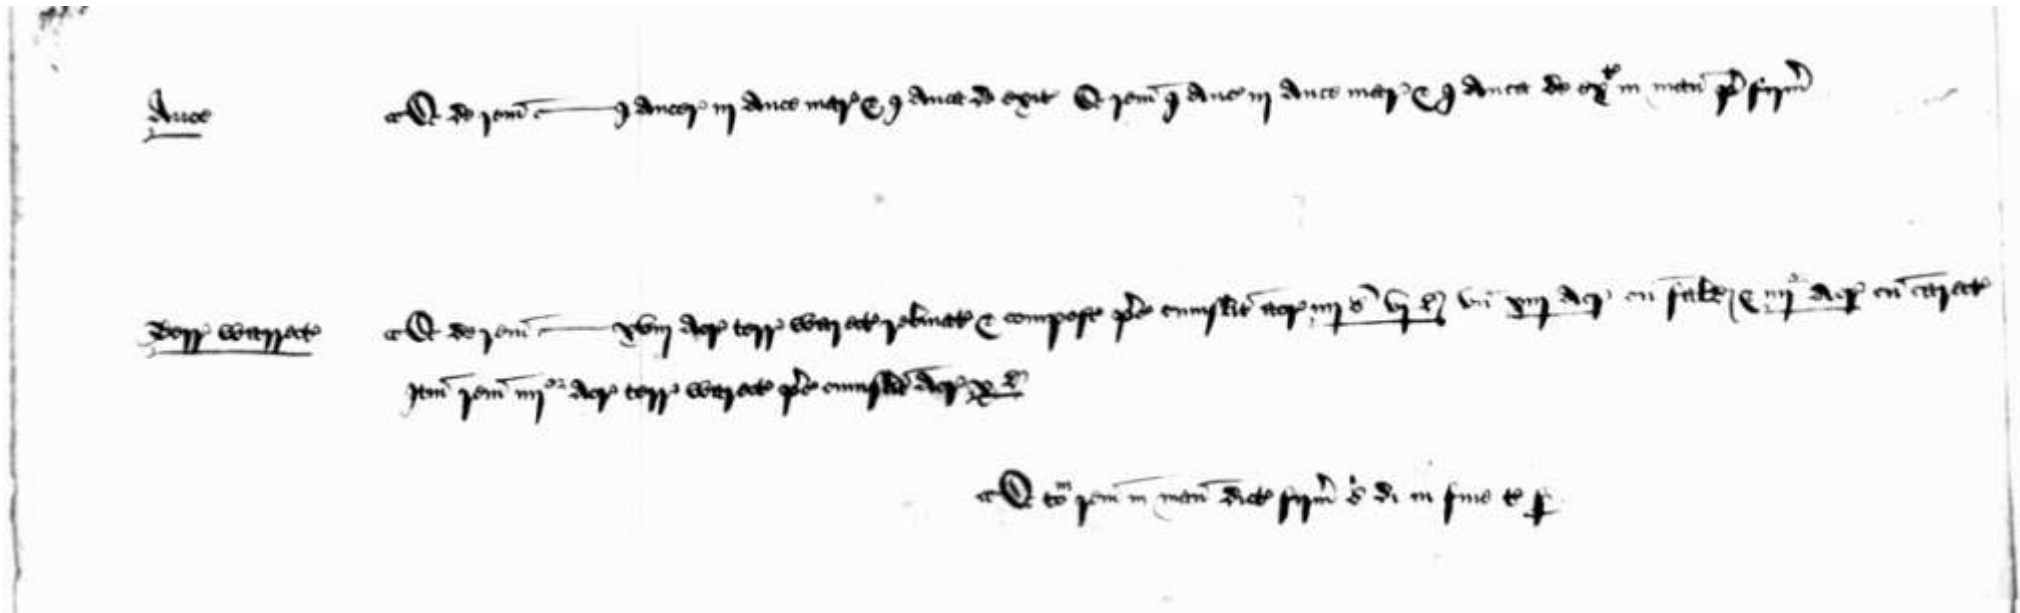 Auce
Et de rem j ancer iij auce mar & j auca de exit Et rem j anc iij auce mar & j auca de ex in man p firm
Terr warect
Et de rem xviij acr terr warect rebinat & compost p'c cuiuslibt acr iiij s vj d un xiiij acr cu fald & iiij acr cu carect
Itm rem iiij acr terr warect p'c cuiuslibt acr x d
Et tom rem in man dict firm s di in fine t